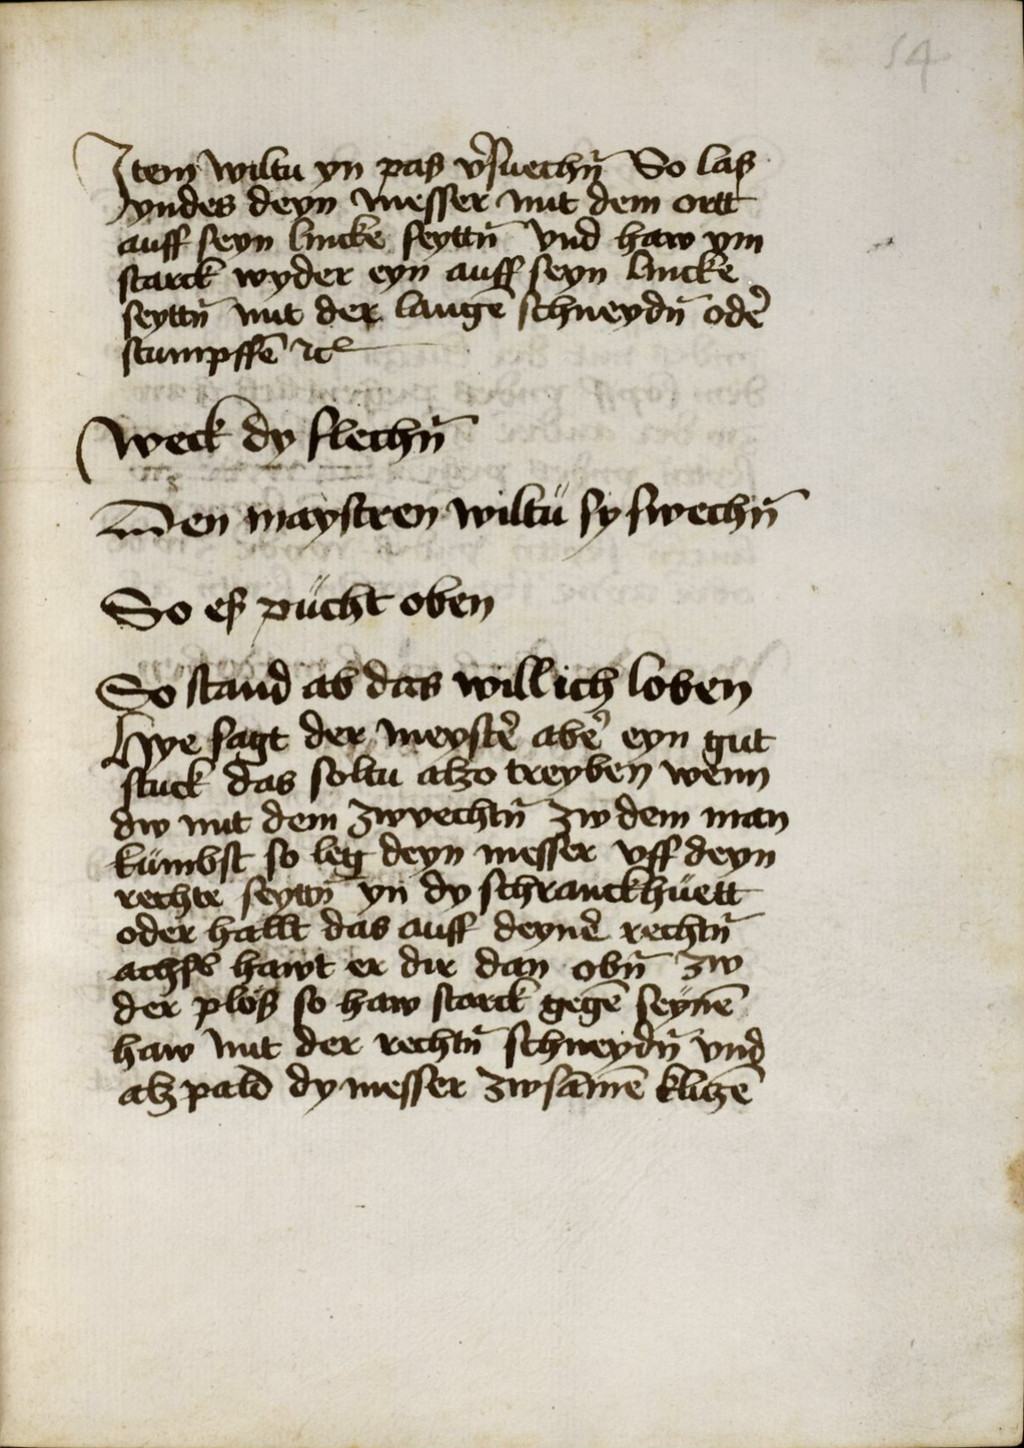 54
Item wiltu yn pas v̉suechn̄ So las
yndes deyn messer mit dem ortt
auff seyn lincke seyttn̄ vnd haw ym
starck wyder eyn auff seyn lincke
seyttn̄ mit der langē schneydn̄ odẻ
stumpffē ⁊c
Weck dy flechn̄
Den maystren wiltu sy swechn̄
So es pücht oben
So stand ab das will ich loben
Hye sagt der meystẻ abẻ eyn gut
stuck das soltu alzo treyben wenn
dw mit dem zwvechtn̄ zw dem man
kümbst so leg deyn messer vff deyn
rechte seyttn̄ yn dy schranckhüett
oder hallt das auff deynẻ rechtn̄
achsl hawt er dir dan obn̄ zw
der plös so haw starck gegē seynē
haw mit der rechtn̄ schneydn̄ vnd
alz pald dy messer zwsāmē klitzē